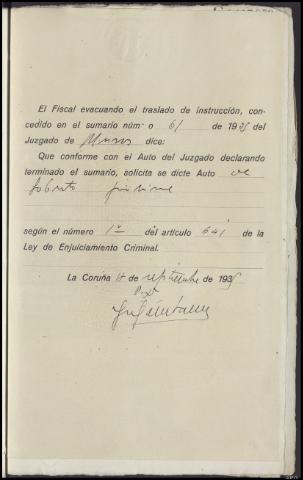 El Fiscal evacuando el traslado de instrucción, con-
cedido en el sumario núm o 61 de 1935 del
Juzgado de Muros dice:
Que conforme con el Auto del Juzgado declarando
terminado el sumario, solicita se dicte Auto de
según el número 1º del artículo 641 de la
Ley de Enjuiciamiento Criminal.
La Coruña de septiembre de 1935